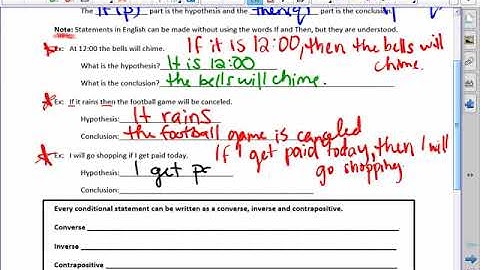 The If (p) part is the hypothesis and the then(q) part is the conclusion.
Note: Statements in English can be made without using the words If and Then, but they are understood.
Ex: At 12:00 the bells will chime. If it is 12:00, then the bells will chime.
What is the hypothesis? It is 12:00
What is the conclusion? the bells will chime.
Ex: If it rains then the football game will be canceled.
Hypothesis: It rains
Conclusion: the football game is canceled
Ex: I will go shopping if I get paid today. If I get paid today, then I will go shopping.
Hypothesis: I get p
Conclusion:
Every conditional statement can be written as a converse, inverse and contrapositive.
Converse
Inverse
Contrapositive